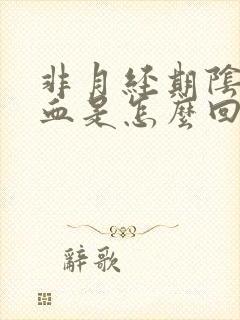 非月經期陰
血是怎麼回
辭歌